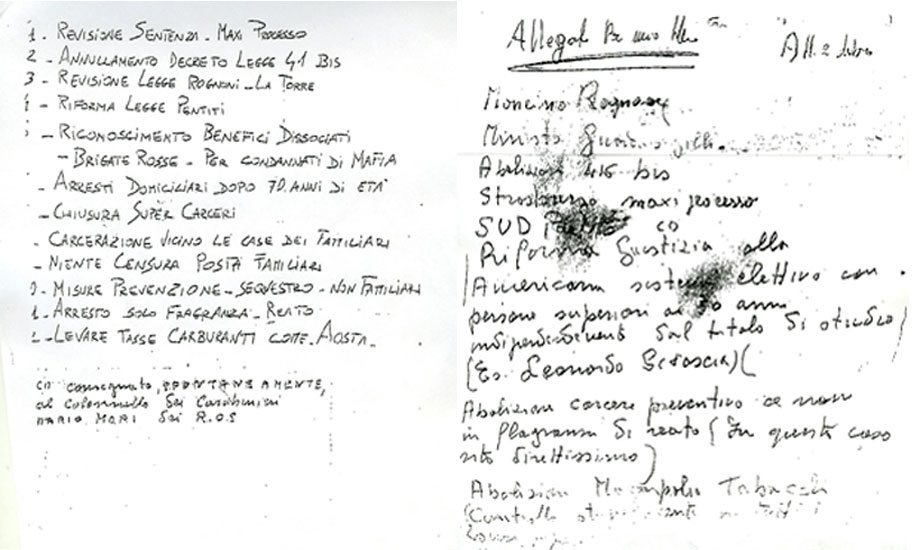 1 - REVISIONE SENTENZA - MAXI PROCESSO
2 - ANNULLAMENTO DECRETO LEGGE 41 BIS
3 - REVISIONE LEGGE ROGNONI - LA TORRE
- RIFORMA LEGGE PENTITI
- RICONOSCIMENTO BENEFICI DISSOCIATI
- BRIGATE ROSSE - PER CONDANNATI DI MAFIA
- ARRESTI DOMICILIARI DOPO 70 ANNI DI ETA'
- CHIUSURA SUPER CARCERI
- CARCERAZIONE VICINO LE CASE DEI FAMILIARI
- NIENTE CENSURA POSTA FAMILIARI
- MISURE PREVENZIONE - SEQUESTRO - NON FAMILIARI
- ARRESTO SOLO FRAGRANZA - REATO
- LEVARE TASSE CARBURANTI COME AOSTA
consegnato, SPONTANEAMENTE,
al colonnello dei Carabinieri
MARIO MORI dei R.O.S
Allegat
All. 2
Mancino Rognoni
Ministro
Abolizione 416 bis
Strasburgo maxi processo
SUD
Riforma Giustizia alla
Americana sistema elettivo con
persone superiori ai 50 anni
indipendentemente dal titolo di studio
(Es. Leonardo Sciascia)
Abolizione carcere preventivo se non
in flagranza di reato (In questo caso
rito direttissimo)
Abolizione Monopolio Tabacchi